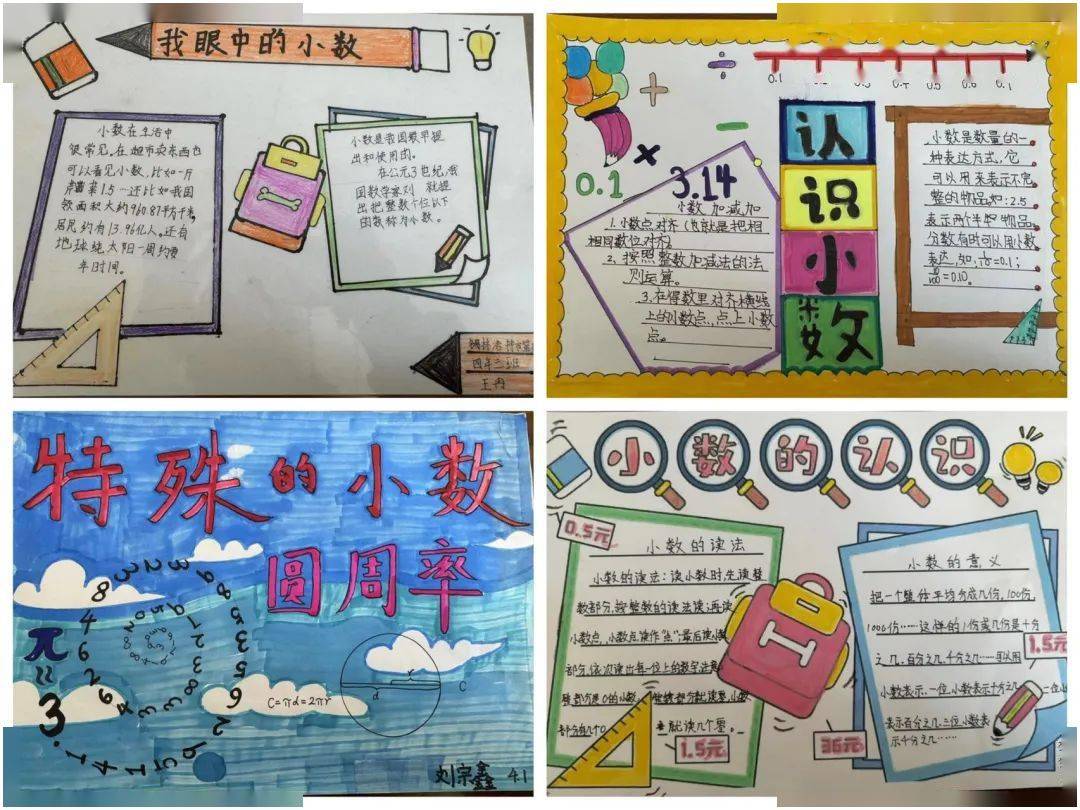 我眼中的小数
小数在生活中
很常见。在超市卖东西也
可以看见小数,比如一斤
1.5…还比如我国
领面积大约960.87平方千米,
居民约有13.96亿人。还有
地球绕太阳一周约要
年时间。
小数是我国最早提
出和使用的。
在公元3世纪,我
国数学家刘 就提
出把整数个位以下
的数称为小数。
四年二班
王冉
0.1
0.1
3.14
认识小数
小数加减加
1.小数点对齐(也就是把相
相同数位对齐)。
2、按照整数加减法的法
则运算。
3.在得数里对齐横线
上的小数点,点上小数
点。
小数是数量的一
种表达方式,它
可以用来表示不完
整的物品如:2.5
表示两个半物品。
分数有时可以用小数
表达,如,=0.1;
=0.10。
特殊的小数
圆周率
π≈3.1415926
C=πd=2πr
r
d
C
刘宗鑫 41
小数的认识
0.5元
小数的读法
小数的读法:读小数时,先读整
数部分,按整数的读法读;再读
小数点,小数点读作"点";最后读小数
部分,依次读出每一位上的数字,注意
就读几个零。
1.5元
小数的意义
把一个整体平均分成几份,100份,
1000份……这样的1份或几份是十分
之几、百分之几、千分之几……可以用
1.5元
小数表示。一位小数表示十分之几
表示百分之几,三位小数表
示千分之几……
35元